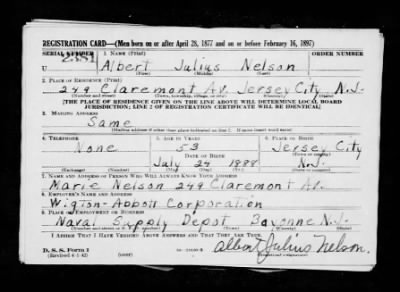 REGISTRATION CARD—(Men born on or after April 28, 1877 and on or before February 16, 1897)
SERIAL NUMBER 1. NAME (Print) ORDER NUMBER
U Albert Julius Nelson
(First) (Middle) (Last)
2. PLACE OF RESIDENCE (Print)
249 Claremont Av. Jersey City N.J.
(Number and street) (Town, township, village, or city) (County) (State)
[THE PLACE OF RESIDENCE GIVEN ON THE LINE ABOVE WILL DETERMINE LOCAL BOARD
JURISDICTION; LINE 2 OF REGISTRATION CERTIFICATE WILL BE IDENTICAL]
3. MAILING ADDRESS
Same
[Mailing address if other than place indicated on line 2. If same insert word same]
4. TELEPHONE 5. AGE IN YEARS 6. PLACE OF BIRTH
None 53 Jersey City
DATE OF BIRTH (Town or county)
July 24 1888 N.J.
(Exchange) (Number) (Mo.) (Day) (Yr.) (State or country)
7. NAME AND ADDRESS OF PERSON WHO WILL ALWAYS KNOW YOUR ADDRESS
Marie Nelson 249 Claremont Av.
8. EMPLOYER'S NAME AND ADDRESS
Wigton-Abbott Corporation
9. PLACE OF EMPLOYMENT OR BUSINESS
Naval Supply Depot Bayonne N.J.
(Number and street or R. F. D. number) (Town) (County) (State)
I AFFIRM THAT I HAVE VERIFIED ABOVE ANSWERS AND THAT THEY ARE TRUE.
D. S. S. Form 1
(Revised 4-1-42) (over) Albert Julius Nelson.